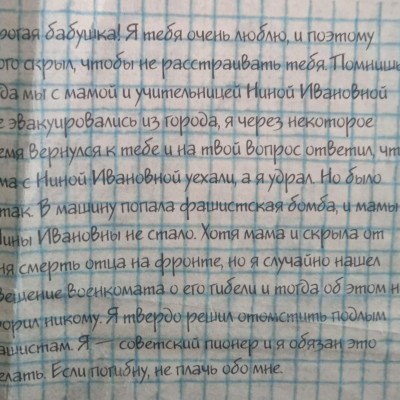 рогая бабушка! Я тебя очень люблю, и поэтому
ого скрыл, чтобы не расстраивать тебя. Помнишь
да мы с мамой и учительницей Ниной Ивановной
е эвакуировались из города, я через некоторое
емя вернулся к тебе и на твой вопрос ответил, чт
ма с Ниной Ивановной уехали, а я удрал. Но было
так. В машину попала фашистская бомба, и мамы
Нины Ивановны не стало. Хотя мама и скрыла от
ня смерть отца на фронте, но я случайно нашел
вещение военкомата о его гибели и тогда об этом н
ворил никому. Я твердо решил отомстить подлым
ашистам. Я — советский пионер и я обязан это
елать. Если погибну, не плачь обо мне.